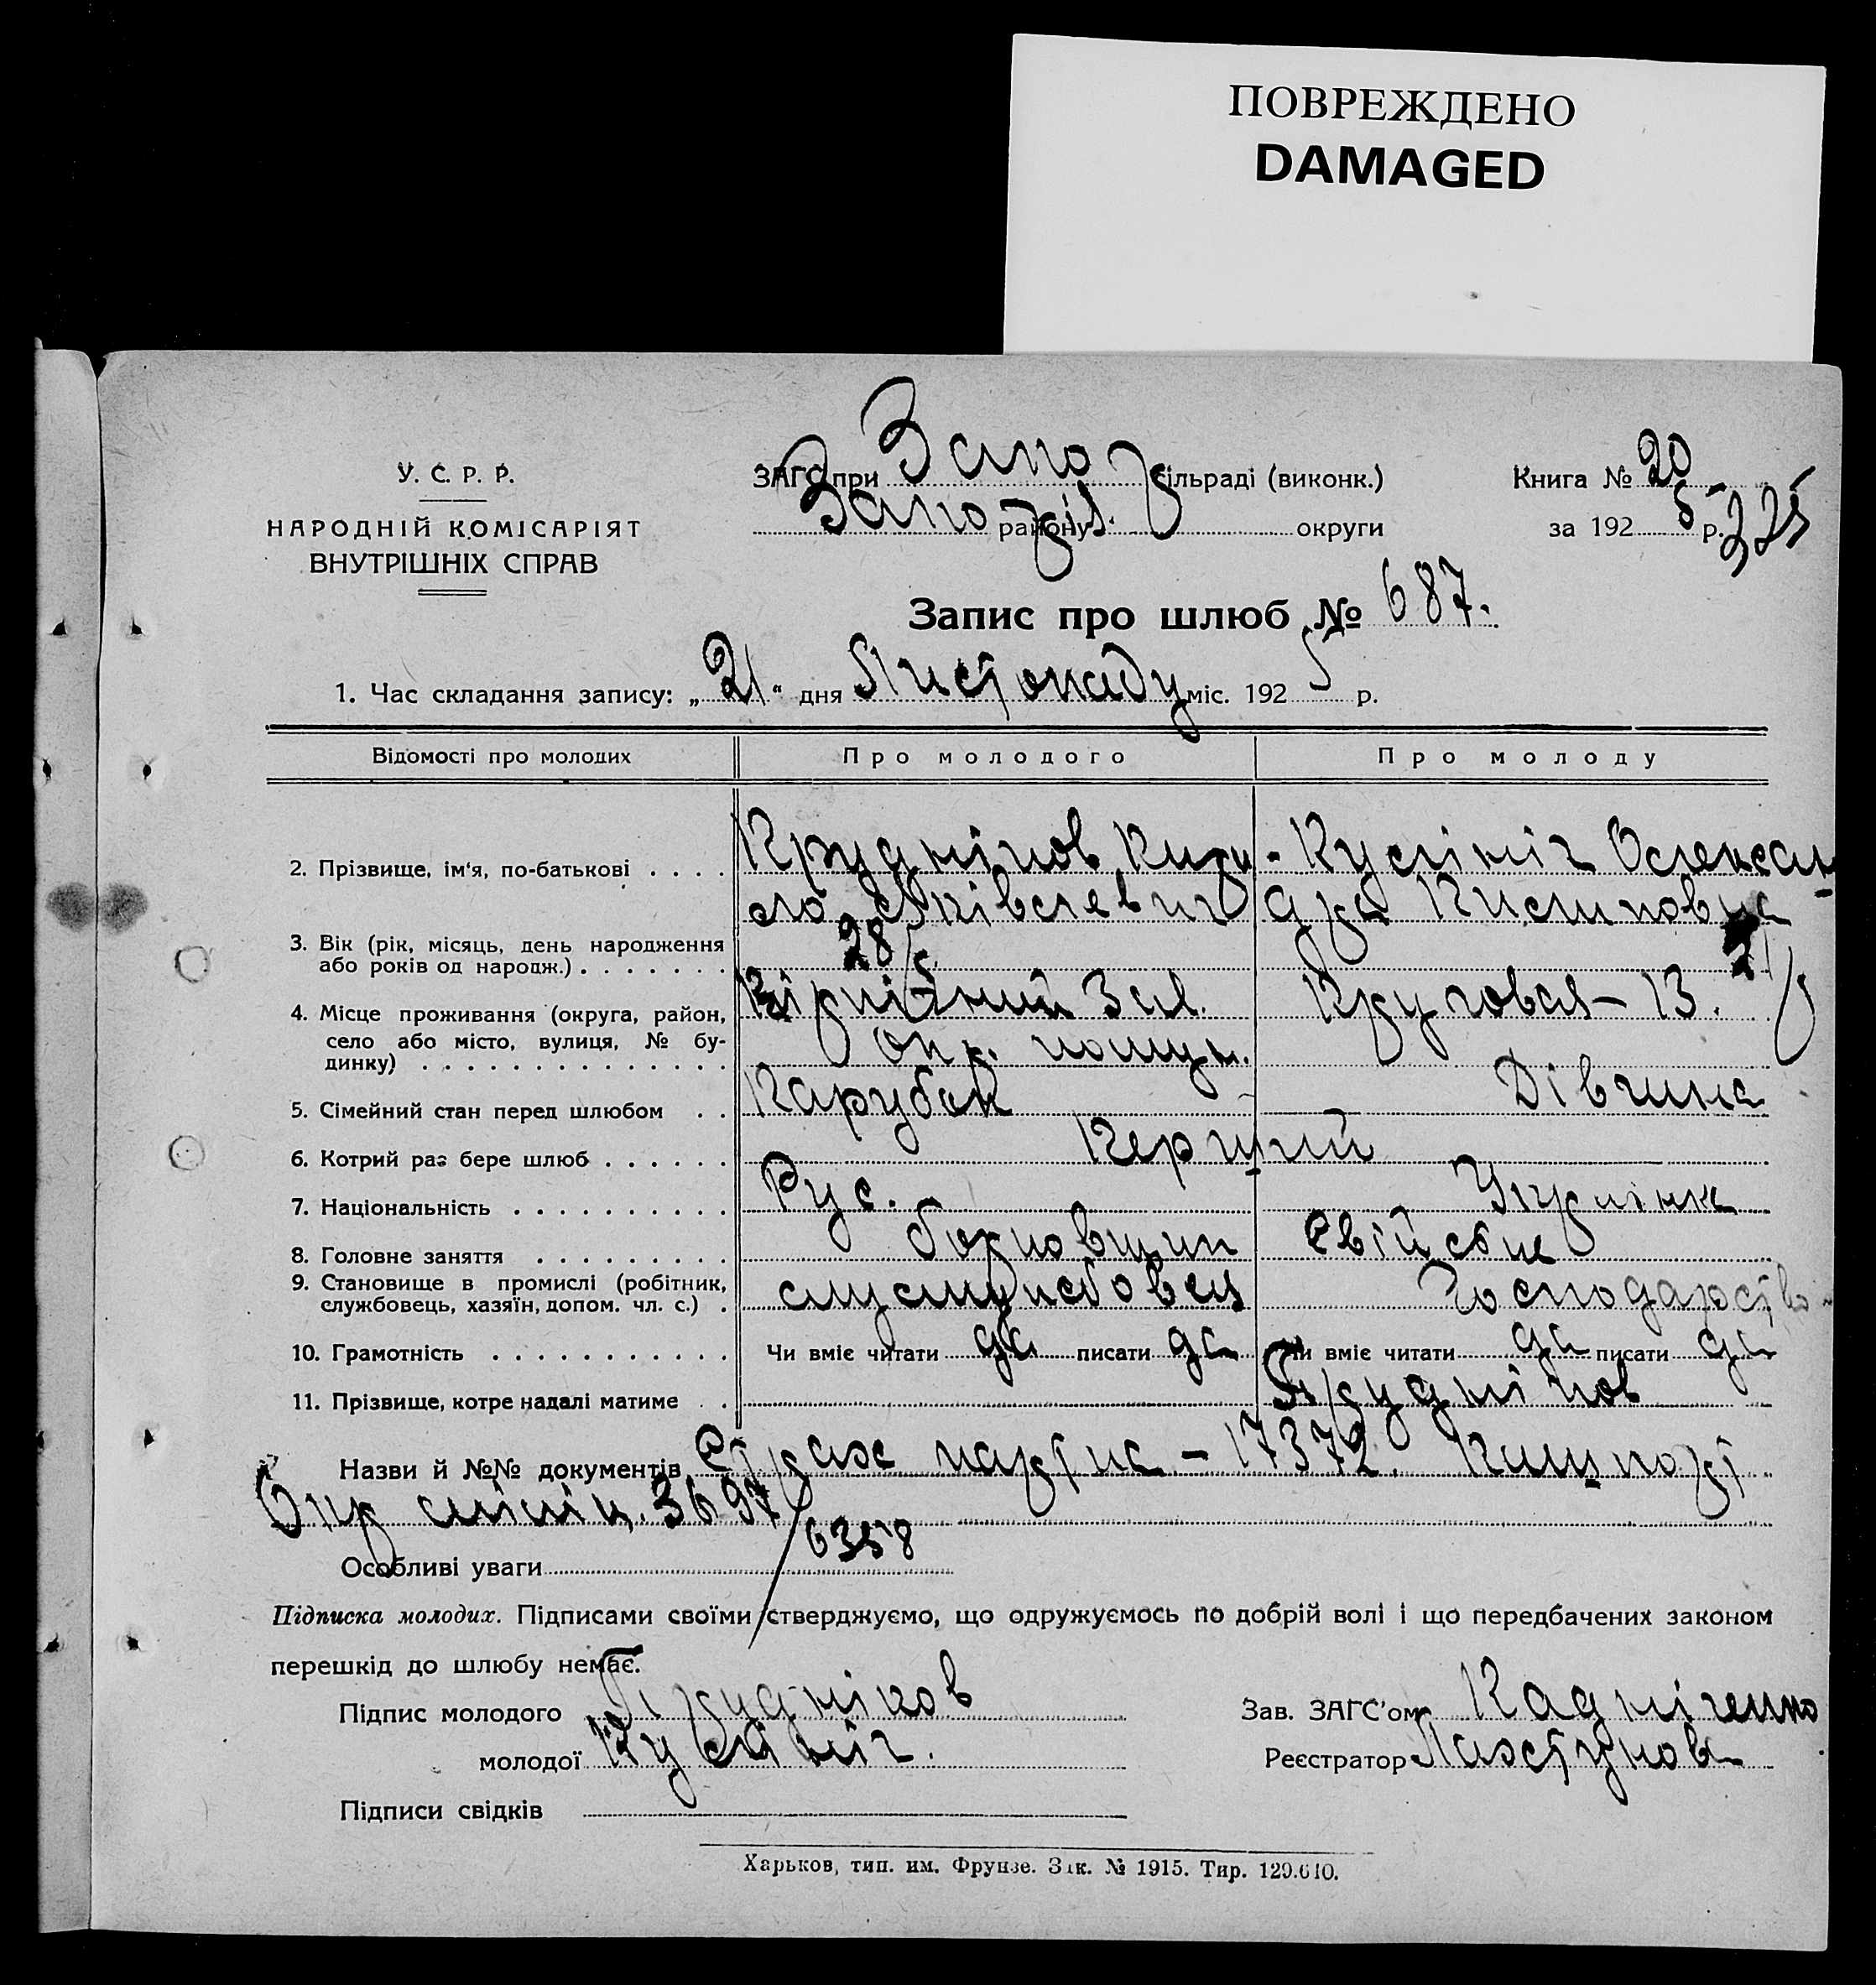 ПОВРЕЖДЕНО
DAMAGED
У. С. Р. Р.
НАРОДНІЙ КОМІСАРІЯТ
ВНУТРІШНІХ СПРАВ
ЗАГС при Запо сільраді (виконк.)
Запоріз. району округи
Книга № 20
за 1925 р. 225
Запис про шлюб № 687.
1. Час складання запису: „21“ дня Листопаду міс. 1925 р.
Відомості про молодих Про молодого Про молоду
2. Прізвище, ім‘я, по-батькові Кири- Кулініч Олексан
ло Яківлевич дра Пилиповна
3. Вік (рік, місяць, день народження
або років од народж.) 28 21
4. Місце проживання (округа, район,
село або місто, вулиця, № бу-
динку) Зал. Круговая – 13.
5. Сімейний стан перед шлюбом Парубок Дівчина
6. Котрий раз бере шлюб Перший
7. Національність Рус. Укрлінка
8. Головне заняття Свійське
9. Становище в промислі (робітник,
службовець, хазяїн, допом. чл. с.) Господарство
10. Грамотність Чи вміє читати да писати да Чи вміє читати да писати да
11. Прізвище, котре надалі матиме
Назви й №№ документів Страх картка – 17372.
Окр міліц. 3697/6358
Особливі уваги
Підписка молодих. Підписами своїми стверджуємо, що одружуємось по добрій волі і що передбачених законом
перешкід до шлюбу немає.
Підпис молодого
Зав. ЗАГС’ом
молодої Кулініч.
Реєстратор
Підписи свідків
Харьков, тип. им. Фрунзе. Зак. № 1915. Тир. 129.610.